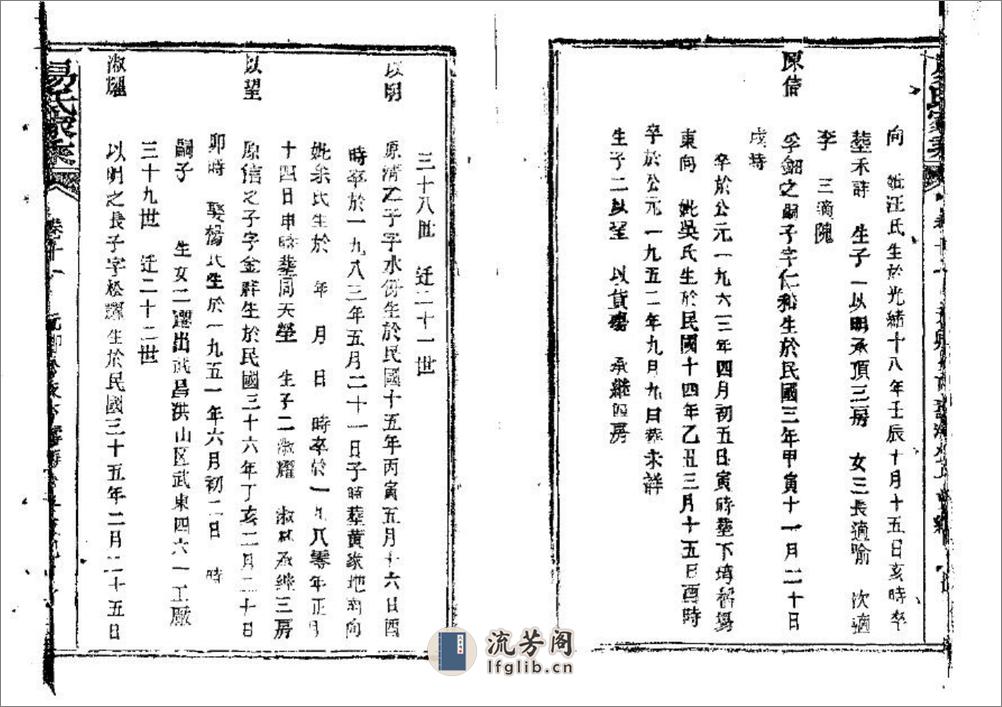 向 妣汪氏生於光緒十八年壬辰十月十五日亥時卒
塟未詳 生子一以明承頂三房 女三長適喻 次適
李 三適隗
原信
孚韶之嗣子字仁裕生於民國三年甲寅十一月二十日
戌時
卒於公元一九六三年四月初五日寅時塟下塆稻場
東向 妣吳氏生於民國十四年乙丑三月十五日酉時
卒於公元一九五二年九月九日塟未詳
生子二以望 以貨殤 承繼四房
三十八世 迁二十一世
以明
原清之子字水份生於民國十五年丙寅五月十六日酉
時卒於一九八三年五月二十一日子時塟黃家地南向
妣余氏生於 年 月 日 時卒於一九八零年正月
十四日申時塟同夭塋 生子二淑耀 淑林承繼三房
以望
原信之子字金群生於民國三十六年丁亥二月二十日
卯時 娶楊氏生於一九五一年六月初二日 時
嗣子 生女二遷出武昌洪山区武東四六一工廠
三十九世 迁二十二世
淑耀
以明之長子字松耀生於民國三十五年二月二十五日
易氏家乘
卷十一
流芳阁
lfglib.cn